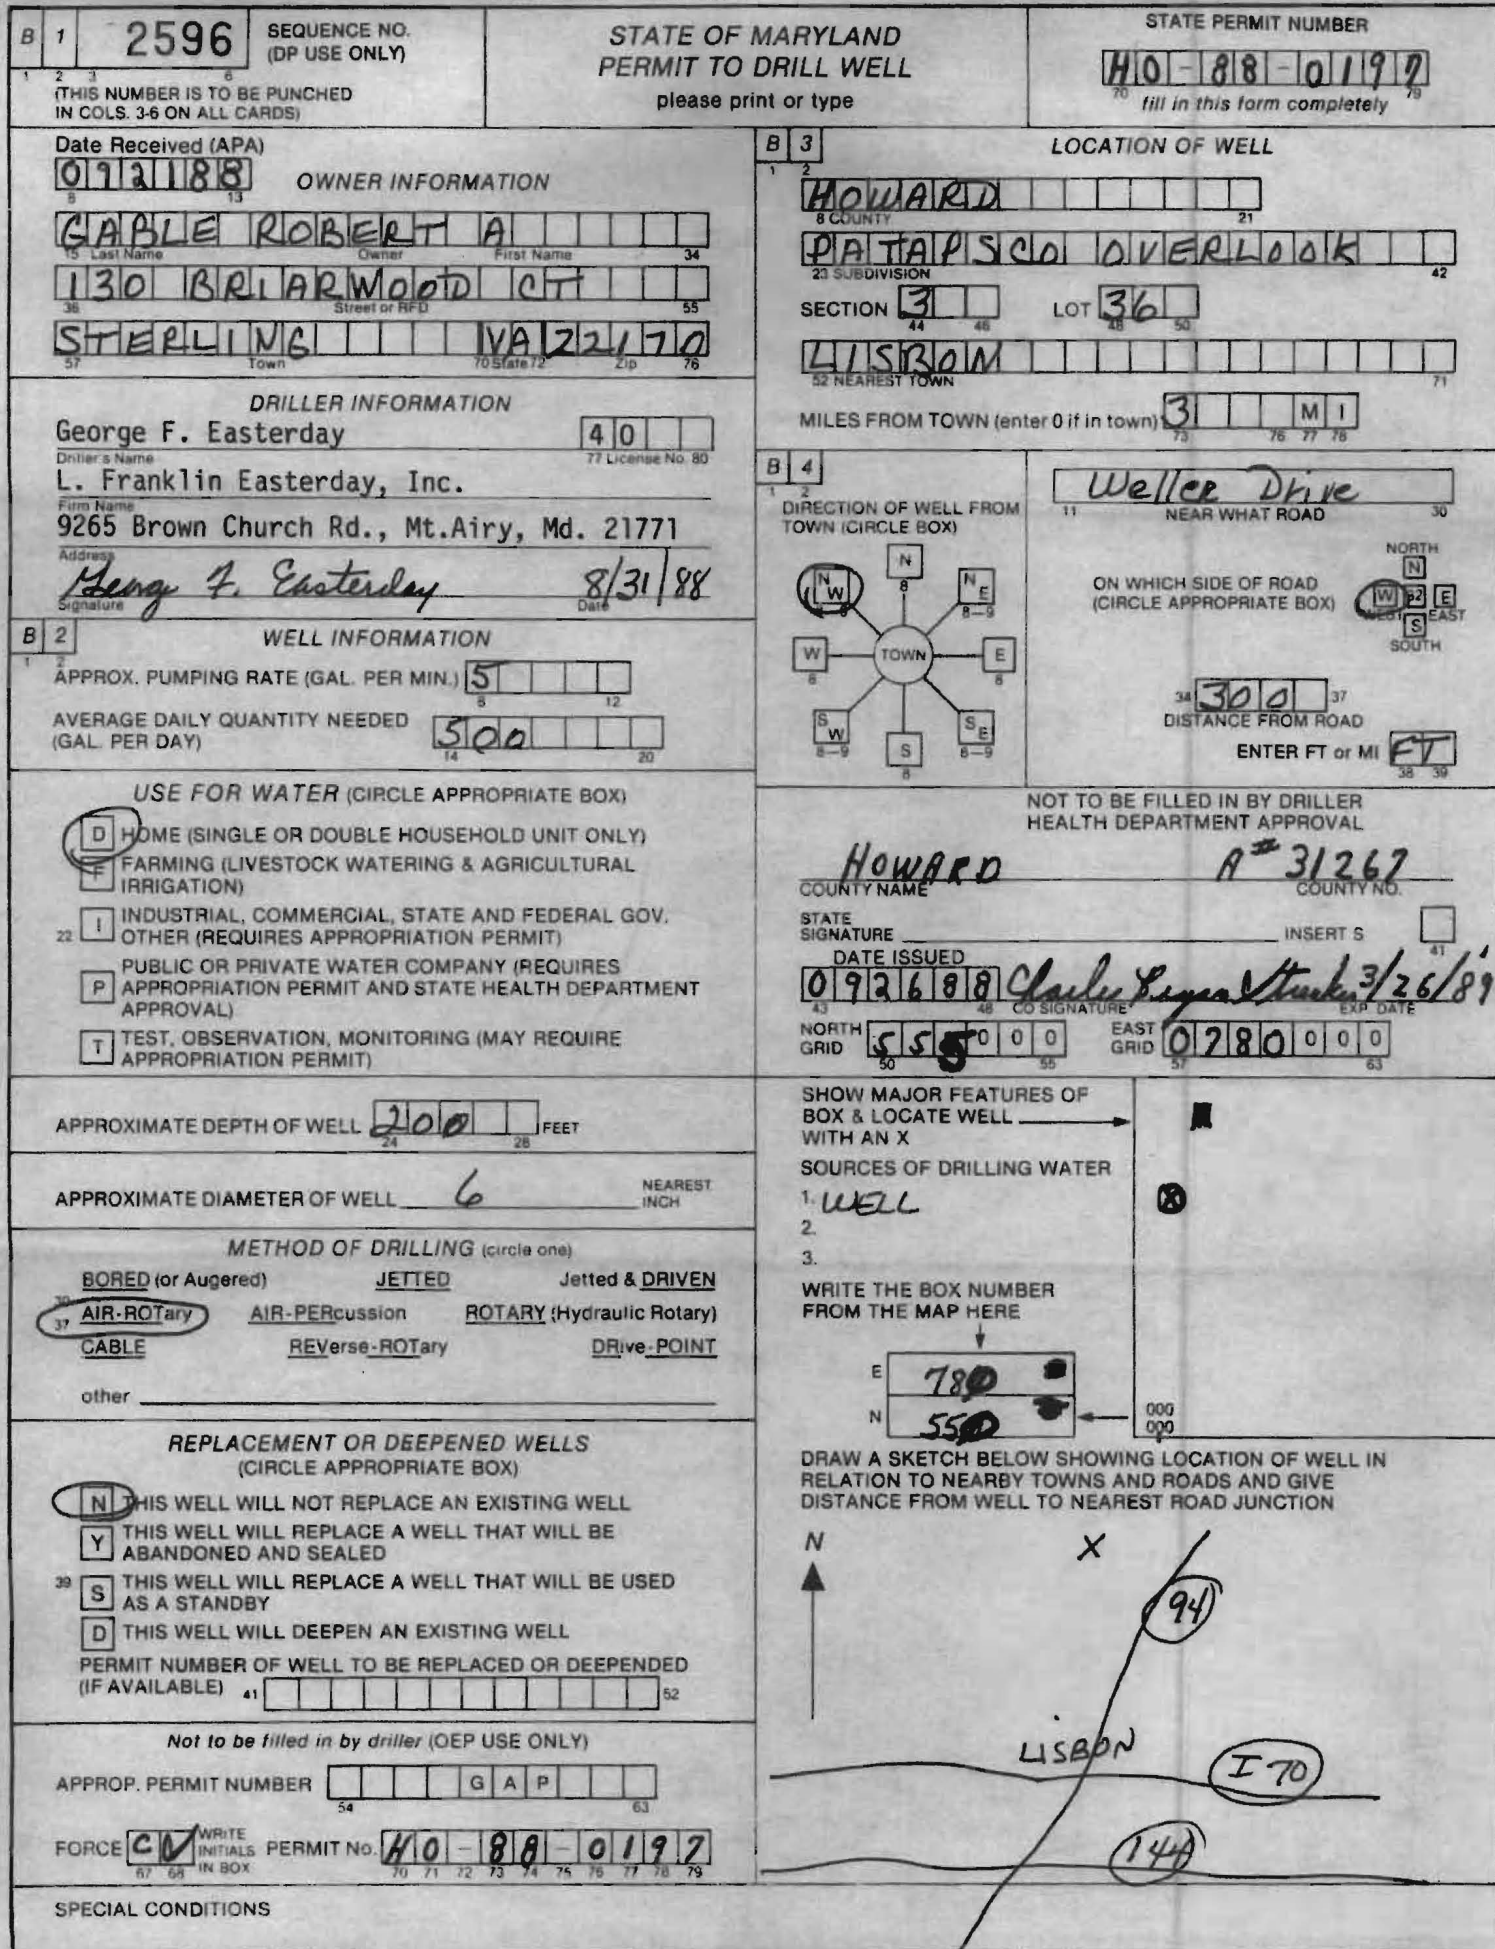 B 1 2596 SEQUENCE NO. (DP USE ONLY)
1 2 3 6
(THIS NUMBER IS TO BE PUNCHED
IN COLS. 3-6 ON ALL CARDS)
STATE OF MARYLAND
PERMIT TO DRILL WELL
please print or type
STATE PERMIT NUMBER
HO-88-0197
70 79
fill in this form completely
Date Received (APA)
092188
8 13
OWNER INFORMATION
GABLE ROBERT A
15 Last Name Owner First Name 34
130 BRIARWOOD CT
36 Street or RFD 55
STERLING VA 22170
57 Town 70 State 72 Zip 76
DRILLER INFORMATION
George F. Easterday 40
Driller's Name 77 License No. 80
L. Franklin Easterday, Inc.
Firm Name
9265 Brown Church Rd., Mt.Airy, Md. 21771
Address
George F. Easterday 8/31/88
Signature Date
B 2 WELL INFORMATION
1 2
APPROX. PUMPING RATE (GAL. PER MIN.) 5
8 12
AVERAGE DAILY QUANTITY NEEDED
(GAL. PER DAY) 500
14 20
USE FOR WATER (CIRCLE APPROPRIATE BOX)
D HOME (SINGLE OR DOUBLE HOUSEHOLD UNIT ONLY)
F FARMING (LIVESTOCK WATERING & AGRICULTURAL
IRRIGATION)
22 I INDUSTRIAL, COMMERCIAL, STATE AND FEDERAL GOV.
OTHER (REQUIRES APPROPRIATION PERMIT)
P PUBLIC OR PRIVATE WATER COMPANY (REQUIRES
APPROPRIATION PERMIT AND STATE HEALTH DEPARTMENT
APPROVAL)
T TEST, OBSERVATION, MONITORING (MAY REQUIRE
APPROPRIATION PERMIT)
APPROXIMATE DEPTH OF WELL 200 FEET
24 28
APPROXIMATE DIAMETER OF WELL 6 NEAREST
INCH
METHOD OF DRILLING (circle one)
BORED (or Augered) JETTED Jetted & DRIVEN
30
37 AIR-ROTary AIR-PERcussion ROTARY (Hydraulic Rotary)
CABLE REVerse-ROTary DRive-POINT
other
REPLACEMENT OR DEEPENED WELLS
(CIRCLE APPROPRIATE BOX)
N THIS WELL WILL NOT REPLACE AN EXISTING WELL
Y THIS WELL WILL REPLACE A WELL THAT WILL BE
ABANDONED AND SEALED
39 S THIS WELL WILL REPLACE A WELL THAT WILL BE USED
AS A STANDBY
D THIS WELL WILL DEEPEN AN EXISTING WELL
PERMIT NUMBER OF WELL TO BE REPLACED OR DEEPENDED
(IF AVAILABLE) 41 52
Not to be filled in by driller (OEP USE ONLY)
APPROP. PERMIT NUMBER G A P
54 63
FORCE WRITE
INITIALS
IN BOX PERMIT No. HO-88-0197
67 68 70 71 72 73 74 75 76 77 78 79
SPECIAL CONDITIONS
B 3 LOCATION OF WELL
1 2
HOWARD
8 COUNTY 21
PATAPSCO OVERLOOK
23 SUBDIVISION 42
SECTION 3 LOT 36
44 46 48 50
LISBON
52 NEAREST TOWN 71
MILES FROM TOWN (enter 0 if in town) 3 M I
73 76 77 78
B 4
1 2
DIRECTION OF WELL FROM
TOWN (CIRCLE BOX)
N
8
NW NE
8-9
W TOWN E
8 8
SW SE
8-9 S 8-9
8
Weller Drive
11 NEAR WHAT ROAD 30
ON WHICH SIDE OF ROAD
(CIRCLE APPROPRIATE BOX)
NORTH
N
W 32 E
WEST EAST
S
SOUTH
34 300 37
DISTANCE FROM ROAD
ENTER FT or MI FT
38 39
NOT TO BE FILLED IN BY DRILLER
HEALTH DEPARTMENT APPROVAL
HOWARD A# 31267
COUNTY NAME COUNTY NO.
STATE
SIGNATURE INSERT S
41
DATE ISSUED
092688 3/26/89
43 48 CO SIGNATURE EXP. DATE
NORTH
GRID 555000 EAST
GRID 0780000
50 55 57 63
SHOW MAJOR FEATURES OF
BOX & LOCATE WELL
WITH AN X
SOURCES OF DRILLING WATER
1. WELL
2.
3.
WRITE THE BOX NUMBER
FROM THE MAP HERE
E 780
N 550
000
000
DRAW A SKETCH BELOW SHOWING LOCATION OF WELL IN
RELATION TO NEARBY TOWNS AND ROADS AND GIVE
DISTANCE FROM WELL TO NEAREST ROAD JUNCTION
N
X
94
LISBON
I 70
144